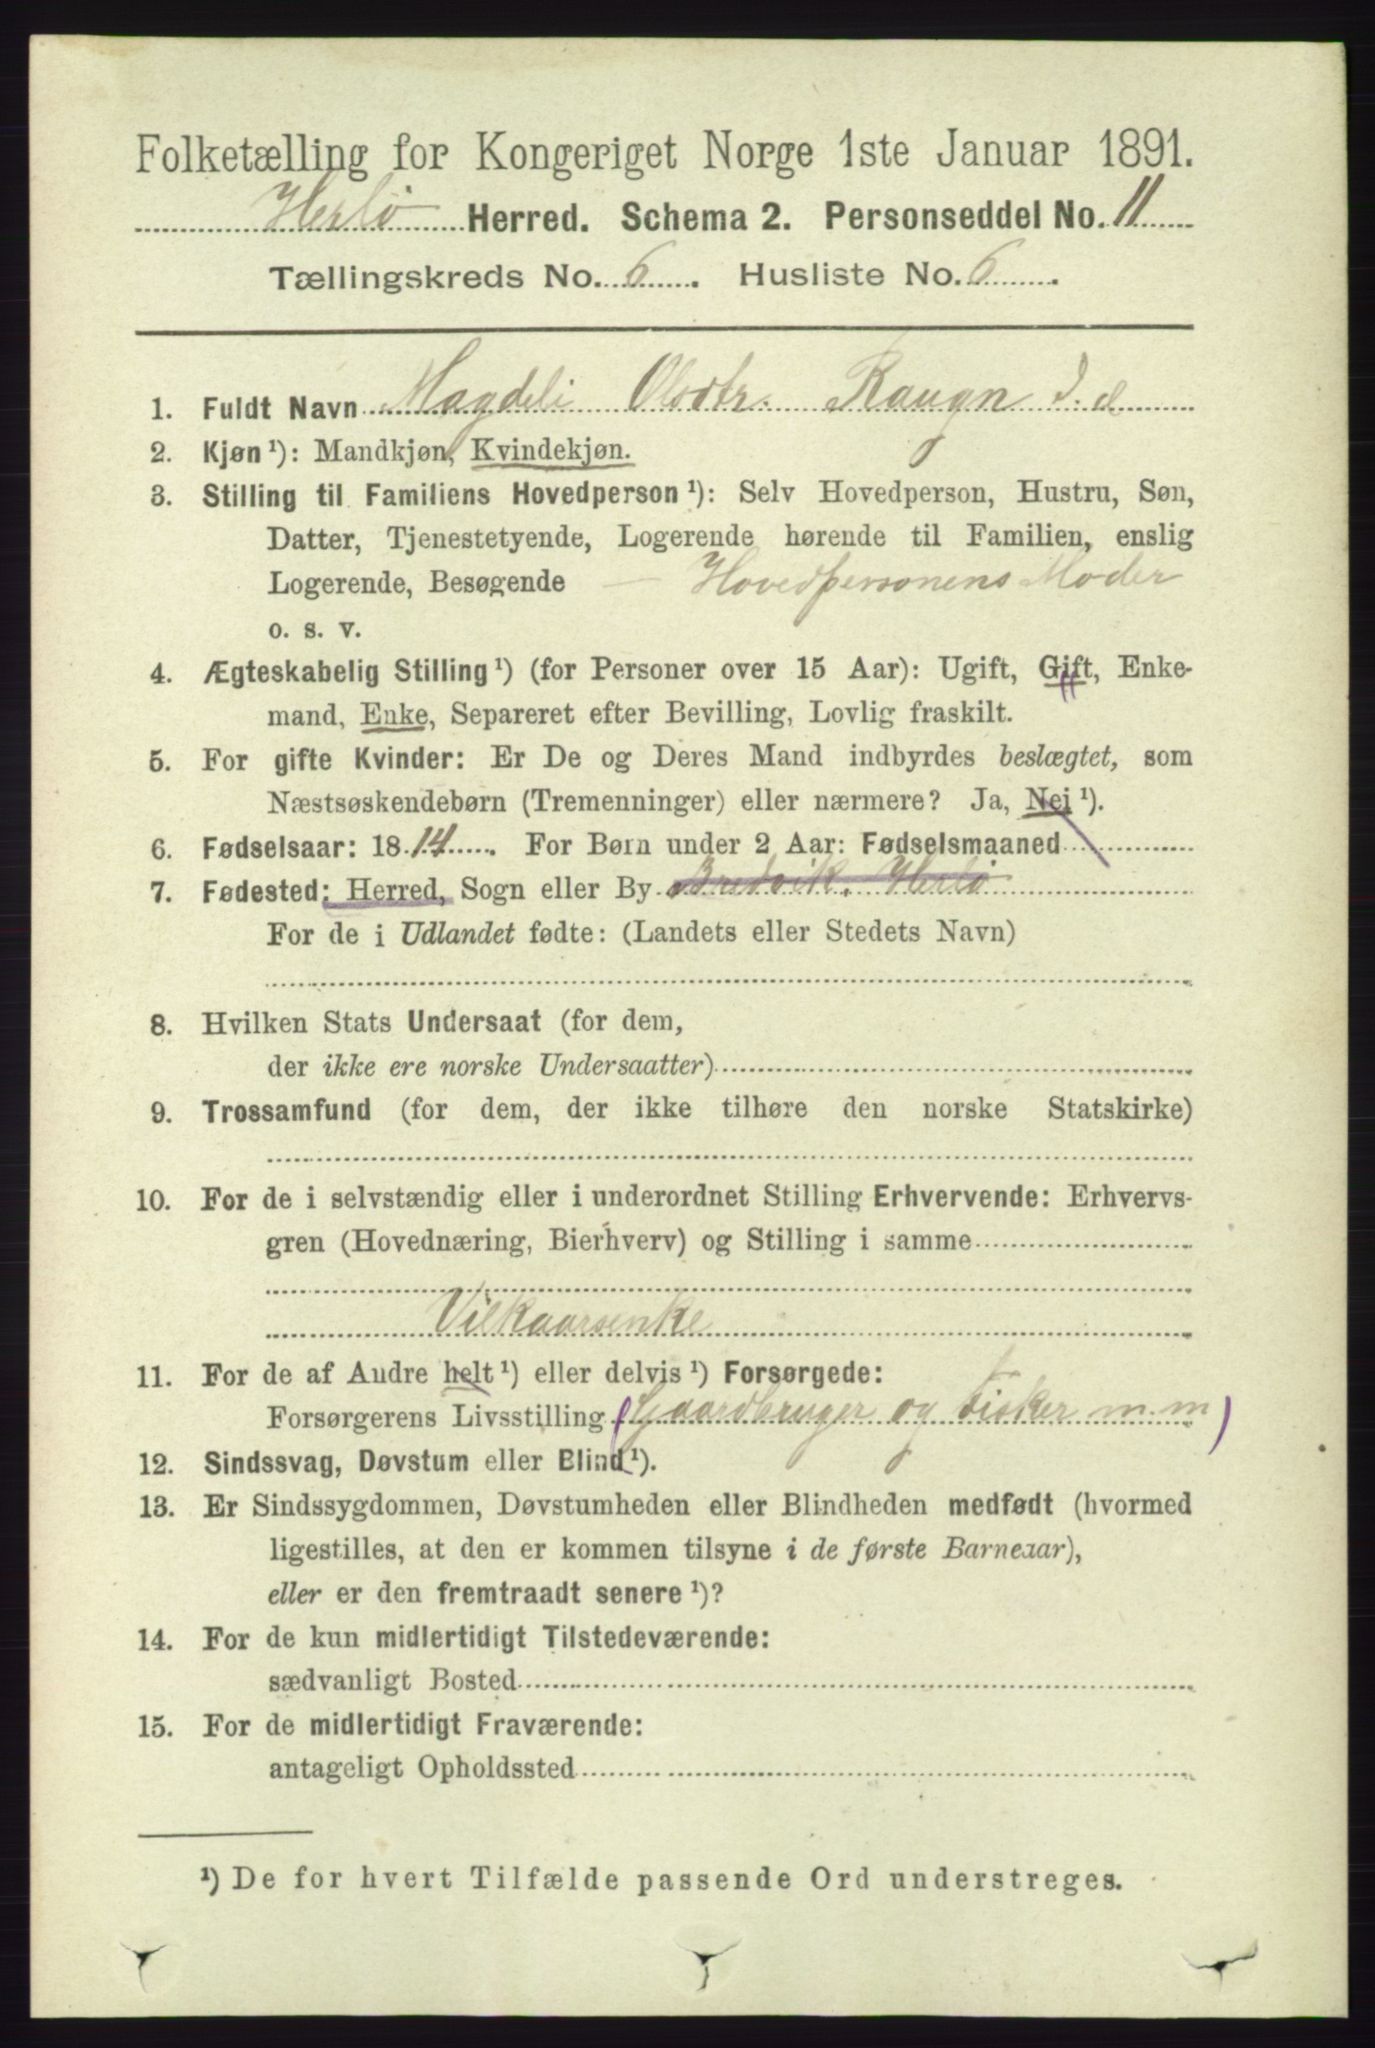 Folketælling for Kongeriget Norge 1ste Januar 1891.
Herlø Herred. Schema 2. Personseddel No. 11
Tællingskreds No. 6. Husliste No. 6.
1. Fuldt Navn Magdeli Olsdtr.
2. Kjøn ¹): Mandkjøn, Kvindekjøn.
3. Stilling til Familiens Hovedperson ¹): Selv Hovedperson, Hustru, Søn,
Datter, Tjenestetyende, Logerende hørende til Familien, enslig
Logerende, Besøgende — Hovedpersonens Moder
o. s. v.
4. Ægteskabelig Stilling ¹) (for Personer over 15 Aar): Ugift, Gift, Enke-
mand, Enke, Separeret efter Bevilling, Lovlig fraskilt.
5. For gifte Kvinder: Er De og Deres Mand indbyrdes beslægtet, som
Næstsøskendebørn (Tremenninger) eller nærmere? Ja, Nei ¹).
6. Fødselsaar: 1814. For Børn under 2 Aar: Fødselsmaaned
7. Fødested: Herred, Sogn eller By Bredvik. Herlø
For de i Udlandet fødte: (Landets eller Stedets Navn)
8. Hvilken Stats Undersaat (for dem,
der ikke ere norske Undersaatter)
9. Trossamfund (for dem, der ikke tilhøre den norske Statskirke)
10. For de i selvstændig eller i underordnet Stilling Erhvervende: Erhvervs-
gren (Hovednæring, Bierhverv) og Stilling i samme
Vilkaarsenke
11. For de af Andre helt ¹) eller delvis ¹) Forsørgede:
Forsørgerens Livsstilling (Gaardbruger og Fisker m.m)
12. Sindssvag, Døvstum eller Blind ¹).
13. Er Sindssygdommen, Døvstumheden eller Blindheden medfødt (hvormed
ligestilles, at den er kommen tilsyne i de første Barneaar),
eller er den fremtraadt senere ¹)?
14. For de kun midlertidigt Tilstedeværende:
sædvanligt Bosted
15. For de midlertidigt Fraværende:
antageligt Opholdssted
¹) De for hvert Tilfælde passende Ord understreges.